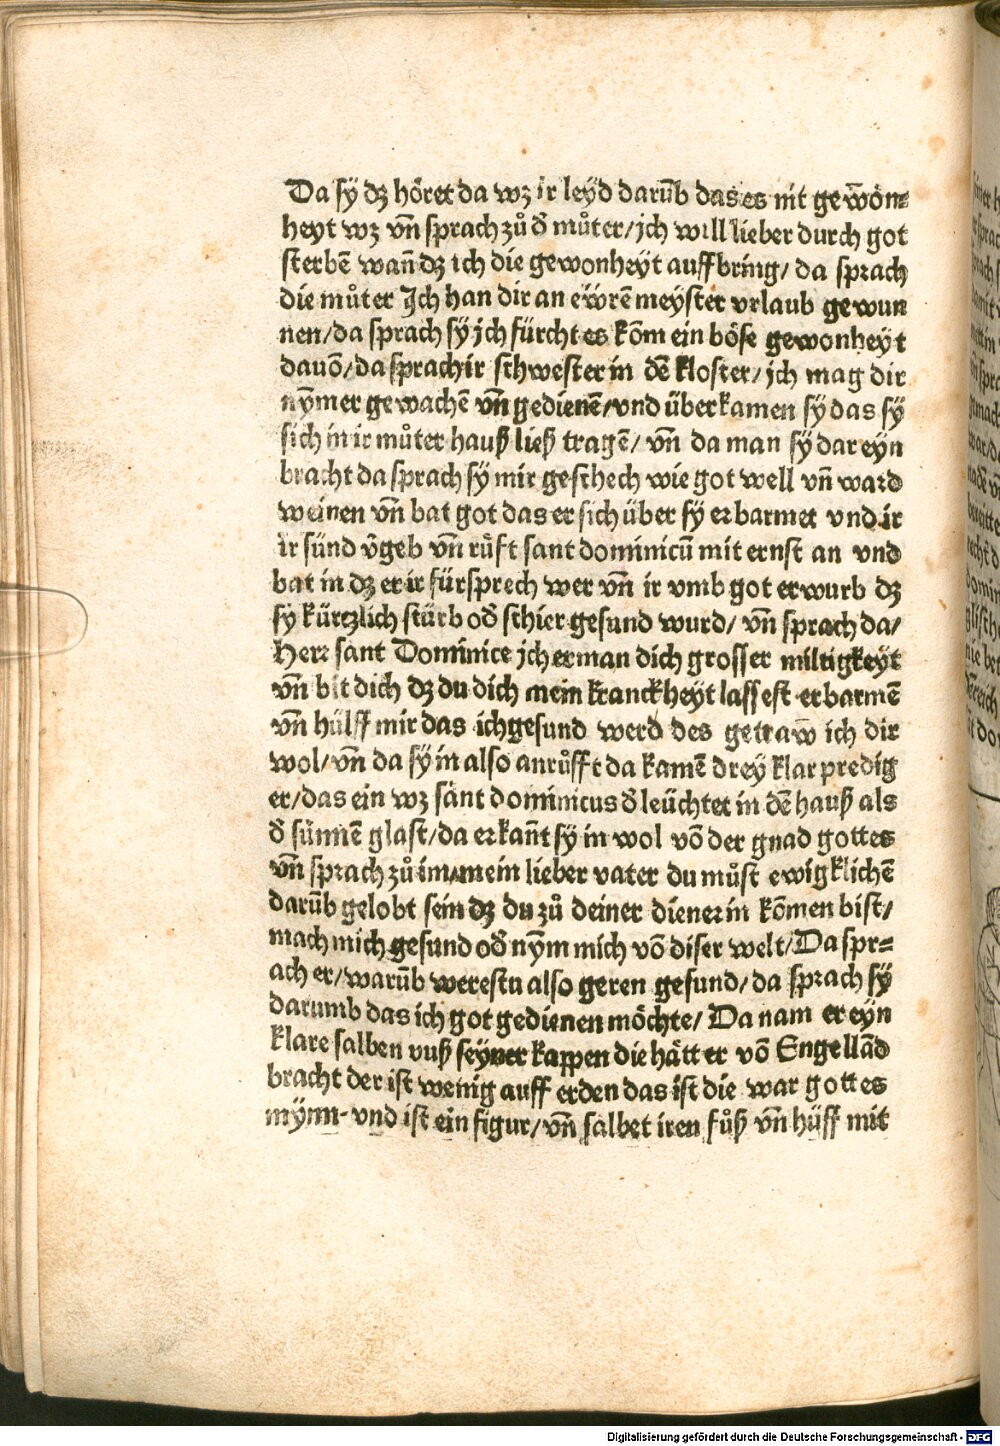 Da sÿ dz höret da wz ir leÿd darūb das es nit gewön⸗
heyt wz vn̄ sprach zů d̄ můter/ jch will lieber durch got
sterbē wan̄ dz ich die gewonheyt auffbring/ da sprach
die můter Jch han dir an eẅrē meyster vrlaub gewun
nen/da sprach sÿ jch fürcht es kōm ein böse gewonheyt
dauō/da sprach ir schwester in dē kloster/ jch mag dir
nÿmer gewachē vn̄ gedienē/vnd überkamen sÿ das sÿ
sich in ir můter hauß ließ tragē/ vn̄ da man sÿ dar eyn
bracht da sprach sÿ mir geschech wie got well vn̄ ward
weinen vn̄ bat got das er sich über sÿ erbarmet vnd ir
ir sünd v̄geb vn̄ růft sant dominicū mit ernst an vnd
bat in dz er ir fürsprech wer vn̄ ir vmb got erwurb dz
sÿ kürtzlich stürb od̄ schier gesund wurd/ vn̄ sprach da/
Herr sant Dominice jch erman dich grosser miltigkeyt
vn̄ bit dich dz du dich mein kranckheyt lassest erbarmē
vn̄ hülff mir das ich gesund werd des getraw̄ ich dir
wol/vn̄ da sÿ in also anrůfft da kamē dreÿ klar predig
er/das ein wz sant dominicus d̄ leüchtet in dē hauß als
d̄ sünnē glast/da erkan̄t sÿ in wol vō der gnad gottes
vn̄ sprach zů im/mein lieber vater du můst ewigklichē
darūb gelobt sein dz du zů deiner dienerin kōmen bist/
mach mich gesund od̄ nȳm mich vō diser welt/Da spr⸗
ach er/warūb werestu also geren gesund/da sprach sÿ
darumb das ich got gedienen möchte/ Da nam er eyn
klare salben vuß seyner kappen die hätt er vō Engellād
bracht der ist wenig auff erden das ist die war gottes
mÿnn⸱ vnd ist ein figur/vn̄ salbet iren fůß vn̄ hüff mit
Digitalisierung gefördert durch die Deutsche Forschungsgemeinschaft - DFG